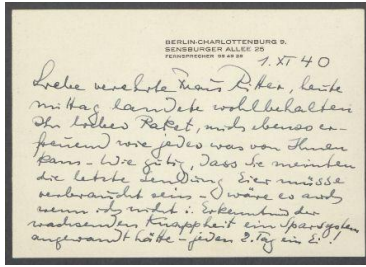 BERLIN-CHARLOTTENBURG 9.
SENSBURGER ALLEE 25
FERNSPRECHER 99 49 28
1. XI 40
Liebe verehrte Frau Ritter, heute
mittag landete wohlbehalten
Ihr liebes Paket, mich ebenso er-
freuend wie jedes was von Ihnen
kam – Wie gütig, dass Sie meinten
die letzte Sendung Eier müsse
verbraucht sein – wäre es auch
wenn ich nicht i. Erkenntnis der
wachsenden Knappheit ein Sparsystem
angewandt hätte – jeden 2. Tag ein Ei!